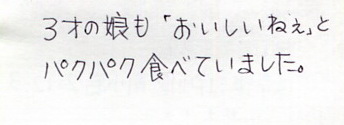 3才の娘も「おいしいねぇ」と
パクパク食べていました。